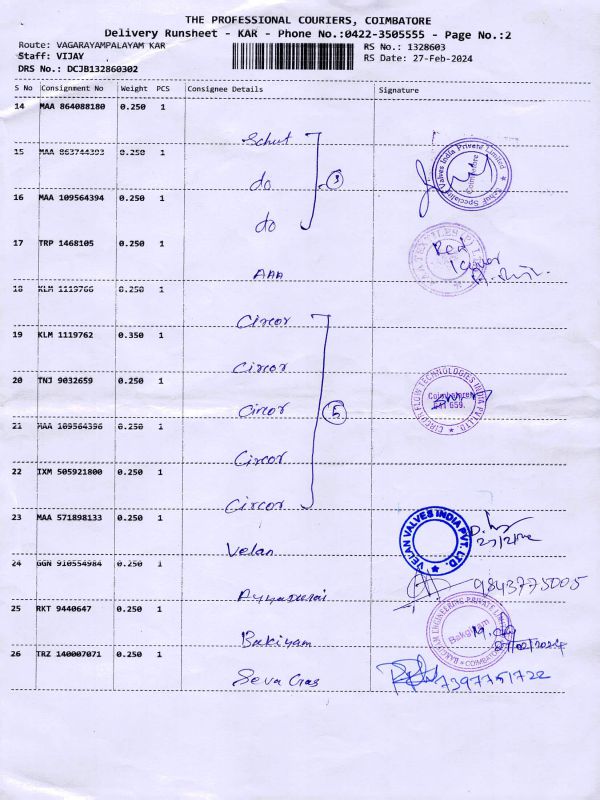 THE PROFESSIONAL COURIERS, COIMBATORE
Delivery Runsheet - KAR - Phone No.:0422-3505555 - Page No.:2
Route: VAGARAYAMPALAYAM KAR
RS No.: 1328603
Staff: VIJAY
RS Date: 27-Feb-2024
DRS No.: DCJB132860302
S No Consignment No Weight PCS Consignee Details Signature
14 MAA 864088180 0.250 1
Schut
15 MAA 863744393 0.250 1
do 3
16 MAA 109564394 0.250 1
do
17 TRP 1468105 0.250 1
AAA
18 KLM 1119766 0.250 1
Circor
19 KLM 1119762 0.350 1
Circor
20 TNJ 9032659 0.250 1
Circor 5
21 MAA 109564396 0.250 1
Circor
22 IXM 505921800 0.250 1
Circor
CIRCOR FLOW TECHNOLOGIES INDIA PVT.LTD.
Coimbatore
641 659.
23 MAA 571898133 0.250 1
Velan
VELAN VALVES INDIA PVT. LTD.
24 GGN 910554984 0.250 1
9843775005
25 RKT 9440647 0.250 1
Bakiyam
27/02/2024
26 TRZ 140007071 0.250 1
Seva Cras
7397751722